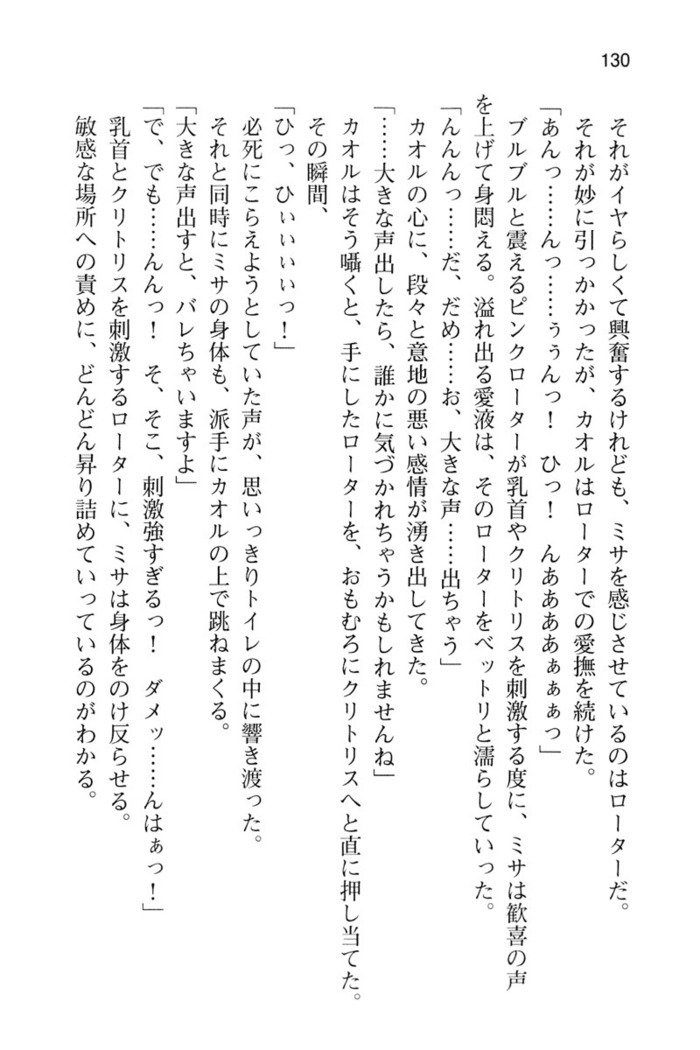 130
それがイヤらしくて興奮するけれども、ミサを感じさせているのはローターだ。
それが妙に引っかかったが、カオルはローターでの愛撫を続けた。
「あんっ……んっ……ぅぅんっ！　ひっ！　んああああぁぁぁっ」
ブルブルと震えるピンクローターが乳首やクリトリスを刺激する度に、ミサは歓喜の声
を上げて身悶える。溢れ出る愛液は、そのローターをベットリと濡らしていった。
「んんんっ……だ、だめ……お、大きな声……出ちゃう」
カオルの心に、段々と意地の悪い感情が湧き出してきた。
「……大きな声出したら、誰かに気づかれちゃうかもしれませんね」
カオルはそう囁くと、手にしたローターを、おもむろにクリトリスへと直に押し当てた。
その瞬間、
「ひっ、ひぃぃぃぃっ！」
必死にこらえようとしていた声が、思いっきりトイレの中に響き渡った。
それと同時にミサの身体も、派手にカオルの上で跳ねまくる。
「大きな声出すと、バレちゃいますよ」
「で、でも……んんっ！　そ、そこ、刺激強すぎるっ！　ダメッ……んはぁっ！」
乳首とクリトリスを刺激するローターに、ミサは身体をのけ反らせる。
敏感な場所への責めに、どんどん昇り詰めていっているのがわかる。